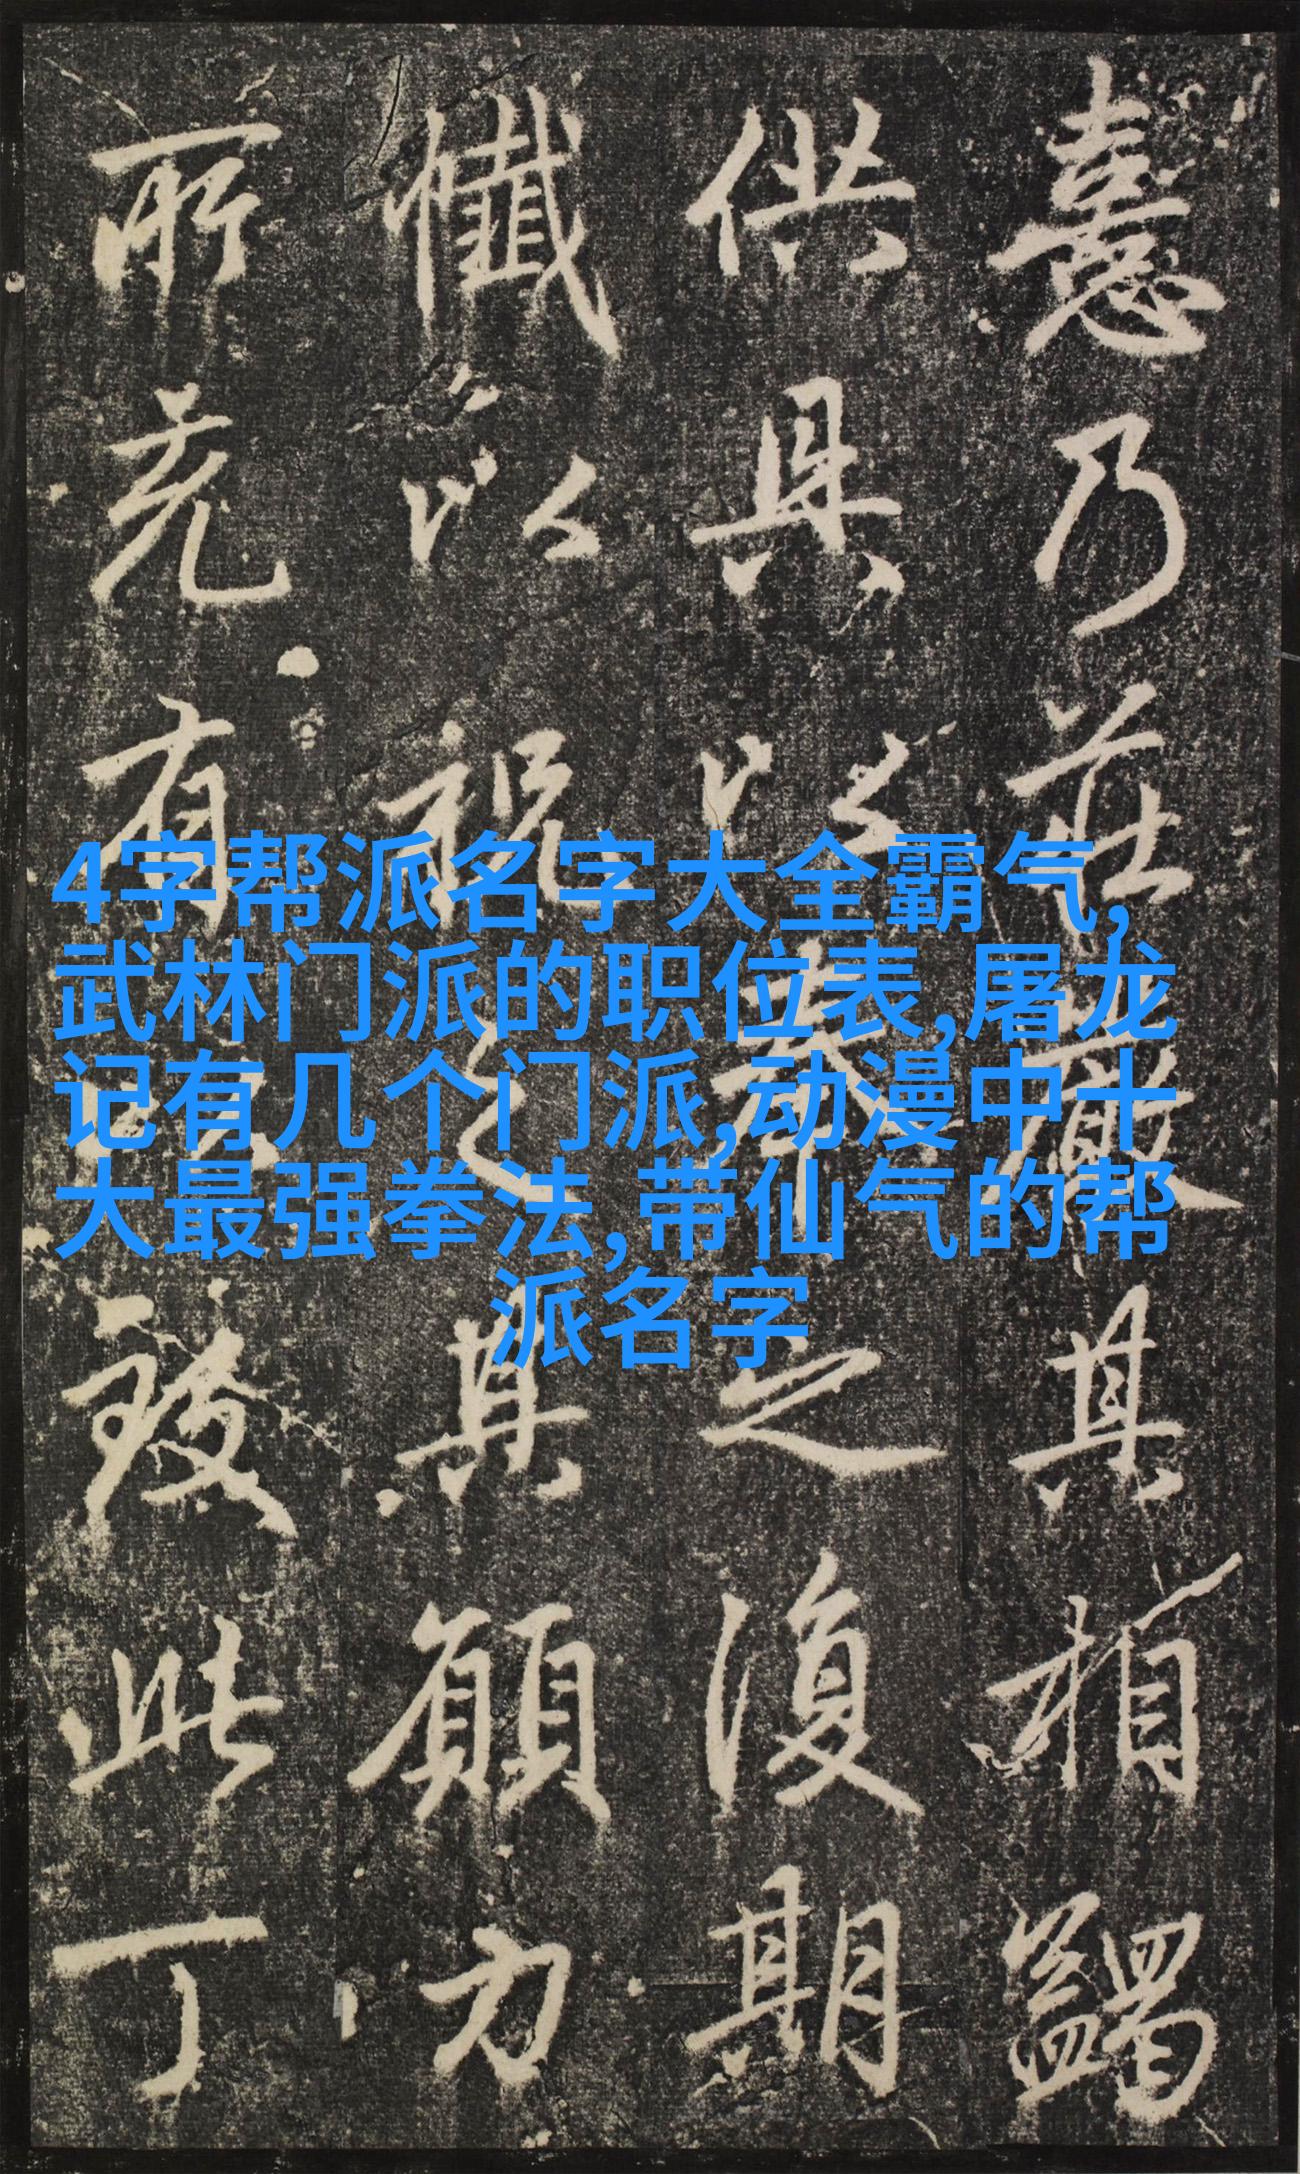 4字帮派名字大全霸气,
武林门派的职位表,屠龙
记有几个门派,动漫中十
大最强拳法,带仙气的帮
派名字
憙乃莊嚴其相蠲
供具以奉之復期
懺以祝之其願力
所有致此丁